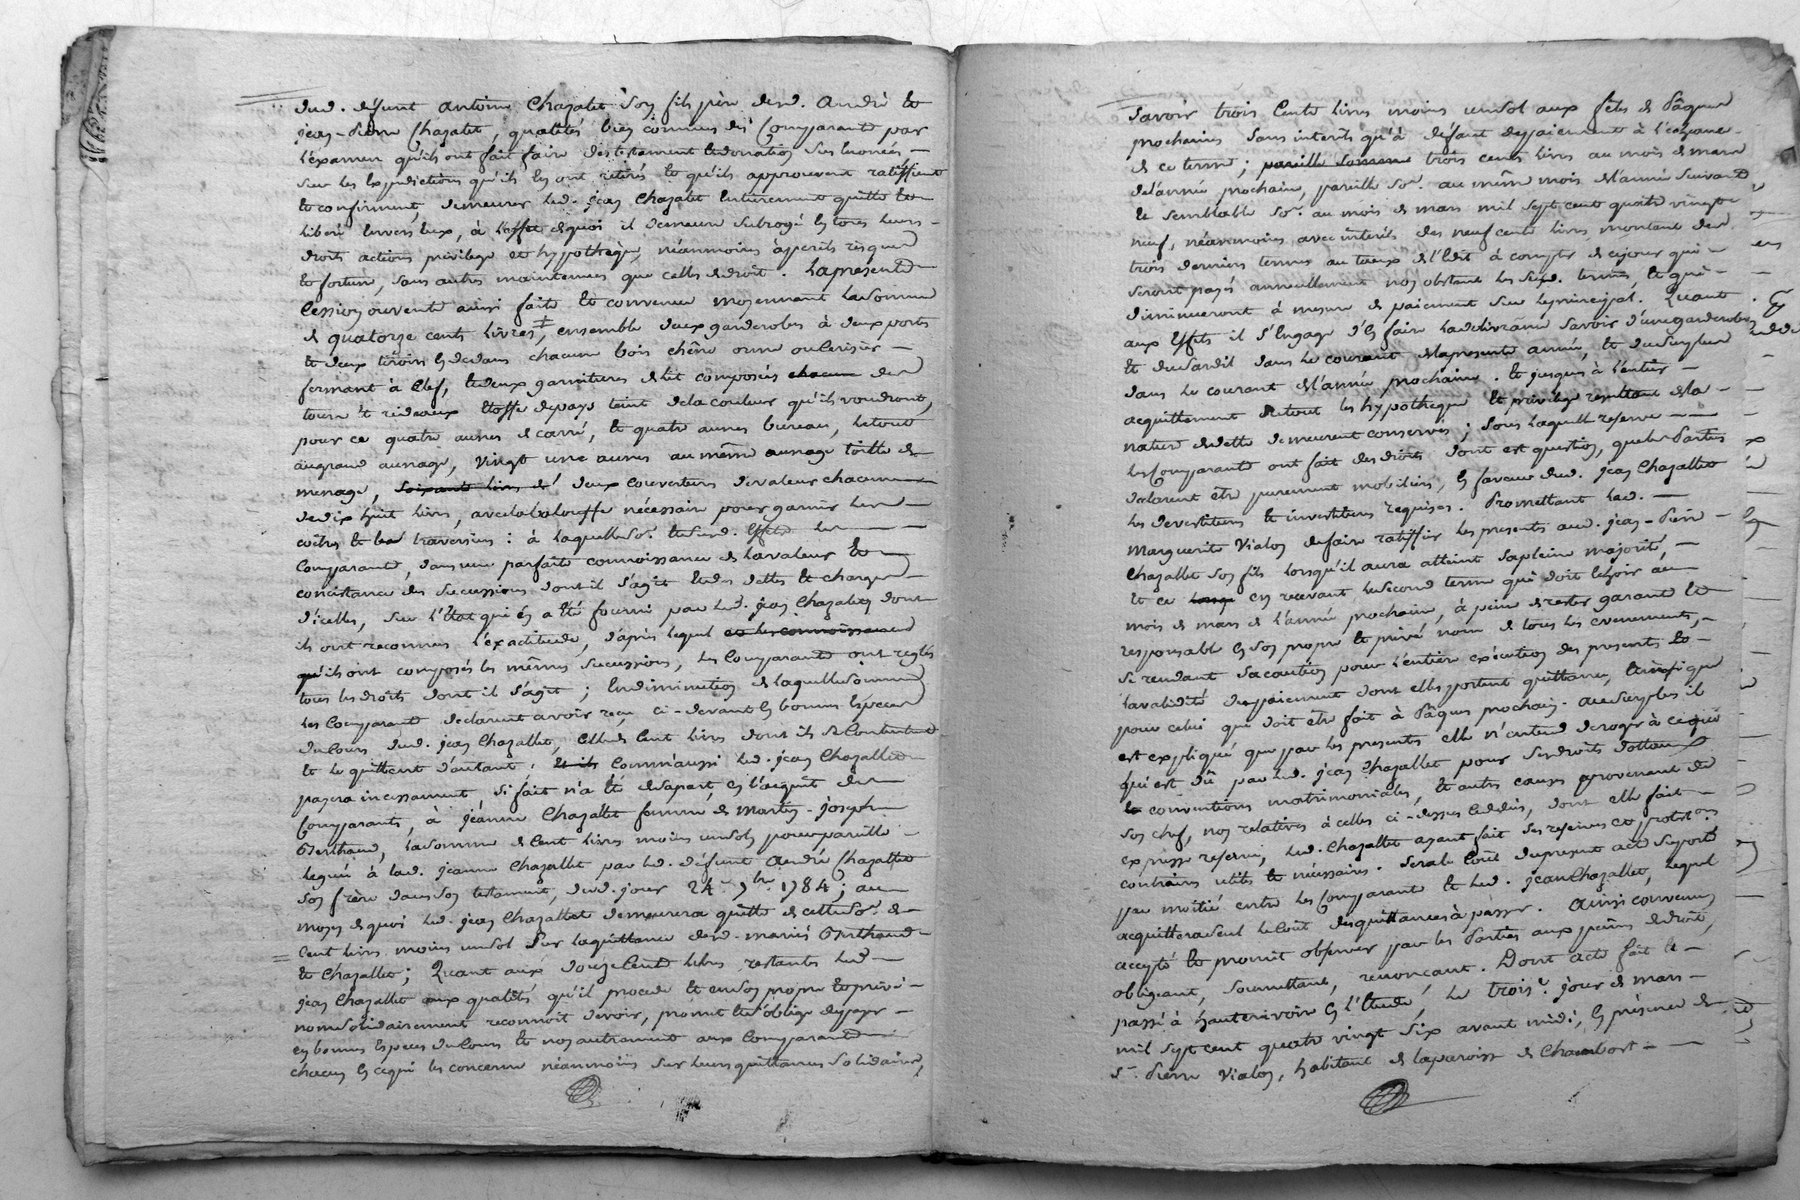 dud. defunt antoine Chazalet son fils père desd. André et
jean-Pierre Chazalet, qualités bien connues des Comparants par
l'examen qu'ils ont fait faire des testament et donation sus énoncés
sur les expéditions qu'ils en ont retirés et qu'ils approuvent ratiffient
et confirment, demeurer led. jean Chazalet entierement quitte et
libéré envers eux, à l'effet de quoi il demeure subrogé en tous leurs
droits actions privilege et hypotheque, néanmoins à perils risques
et fortune, sans autres maintenues que celles de droit. La presente
Cession ou vente ainsi faite et convenue moyennant la somme
de quatorze cents livres, ensemble deux garderobes à deux portes
et deux tiroirs en dedans chacune bois chêne orme ou cerisier
fermant à clef, et deux garnitures de lit composés chacune des
tours et rideaux étoffe de pays teint de la couleur qu'ils voudront,
pour ce quatre aunes de carré, et quatre aunes bureau, le tout
au grand aunage, vingt une aunes au même aunage toille de
menage, soixante livres et deux couvertures de valeur chacune
de dix huit livres, avec la bloufse nécessaire pour garnir les
coëtres et les traversins : à laquelle so. et susd. effets les
Comparants, dans une parfaite connoissance de la valeur et
consistance des successions dont il s'agit et des dettes et charges
d'icelles, sur l'état qui en a été fourni par led. jean Chazalet dont
ils ont reconnu l'exactitude, d'après lequel et les connoissances
qu'ils ont composés les mêmes successions, les Comparants ont reglés
tous les droits dont il s'agit ; en diminution de laquelle somme
les Comparants declarent avoir reçu ci-devant en bonnes Especes
du Cours dud. jean Chazallet, celle de Cent livres dont ils se Contentent
et le quittent d'autant. et ils Comm'aussi led. jean Chazallet
payera incessament si fait n'a été de sa part, en l'acquit des
Comparants, à jeanne Chazallet femme de Martin-joseph
Berthaud, la somme de Cent livres moins un sol, pour pareille
leguée à lad. jeanne Chazallet par led. défunt André Chazallet
son frère dans son testament, dud. jour 24e 9bre 1784 ; au
moyen de quoi led. jean Chazallet demeurera quitte de cette so. de
Cent livres moins un sol sur la quittance desd. mariés Berthaud
et Chazallet ; Quant aux douze Cents livres restantes led.
jean Chazallet aux qualités qu'il procede et en son propre et privé
nom solidairement reconnoit devoir, promet et s'oblige de payer
en bonnes Especes du Cours et non autrement aux Comparants
chacun en ce qui les concerne néanmoins sur leurs quittances solidaires,
Savoir trois Cents livres moins un sol aux fêtes de Pâques
prochaines sans interets qu'à defaut de paiement à l'échéance
de ce terme ; pareille somme trois cents livres au mois de mars
de l'année prochaine, pareille so. au même mois de l'année suivante
et semblable so. au mois de mars mil sept cent quatre vingt
neuf, néanmoins avec interets des neuf cents livres montant des
trois derniers termes au taux de l'Edit à compter de ce jour qui
seront payés annuellement non obstant les susd. termes, et qui
diminueront à mesure de paiement sur le principal. Quant
aux Effets il s'engage d'en faire la délivrance savoir d'une garderobe
et dans le courant de la presente année, et du surplus
dans le courant de l'année prochaine. Et jusques à l'entier
acquittement de tout les hypotheque et privilege resultant de la
nature de dette demeurent conservés ; Sous laquelle reserve
les Comparants ont fait des droits dont est question, que les Parties
declarent être purement mobiliers, en faveur dud. jean Chazallet
les devestitures et investitures requises. Promettant lad.
Marguerite Vialon de faire ratiffier les presentes aud. jean-Pierre
Chazallet son fils lorsqu'il aura atteint sa pleine majorité,
et ce en recevant le second terme qui doit echoir au
mois de mars de l'année prochaine, à peine de rester garante et
responsable en son propre et privé nom de tous les evenements,
se rendant sa caution pour l'entiere exécution des presentes et
la validité du paiement dont elles portent quittance, et ainsi que
pour celui qui doit être fait à Pâques prochain. au surplus il
est expliqué que par les presentes elle n'entend deroger à ce qui
lui est dû par led. jean Chazallet pour ses droits dottaux
et conventions matrimoniales, et autres causes aprovenant de
son chef, non relatives à celles ci-dessus cedées, dont elle fait
expresse reserve, led. Chazallet ayant fait ses reserves et protest.ons
contraires utiles et nécessaires. Sera le Coût du present acte suporté
par moitié entre les Comparants et led. jean Chazallet, lequel
acquittera seul le coût des quittances à passer. Ainsi convenu
accepté et promit observer par les Parties aux peines de droit,
obligeant, soumettant, renonçant. Dont acte fait et
passé à hauterivoire en l'étude, le trois.e jour de mars
mil sept cent quatre vingt six avant midi, en présence de
s.r Pierre Vialon, habitant de la paroisse de Chambost